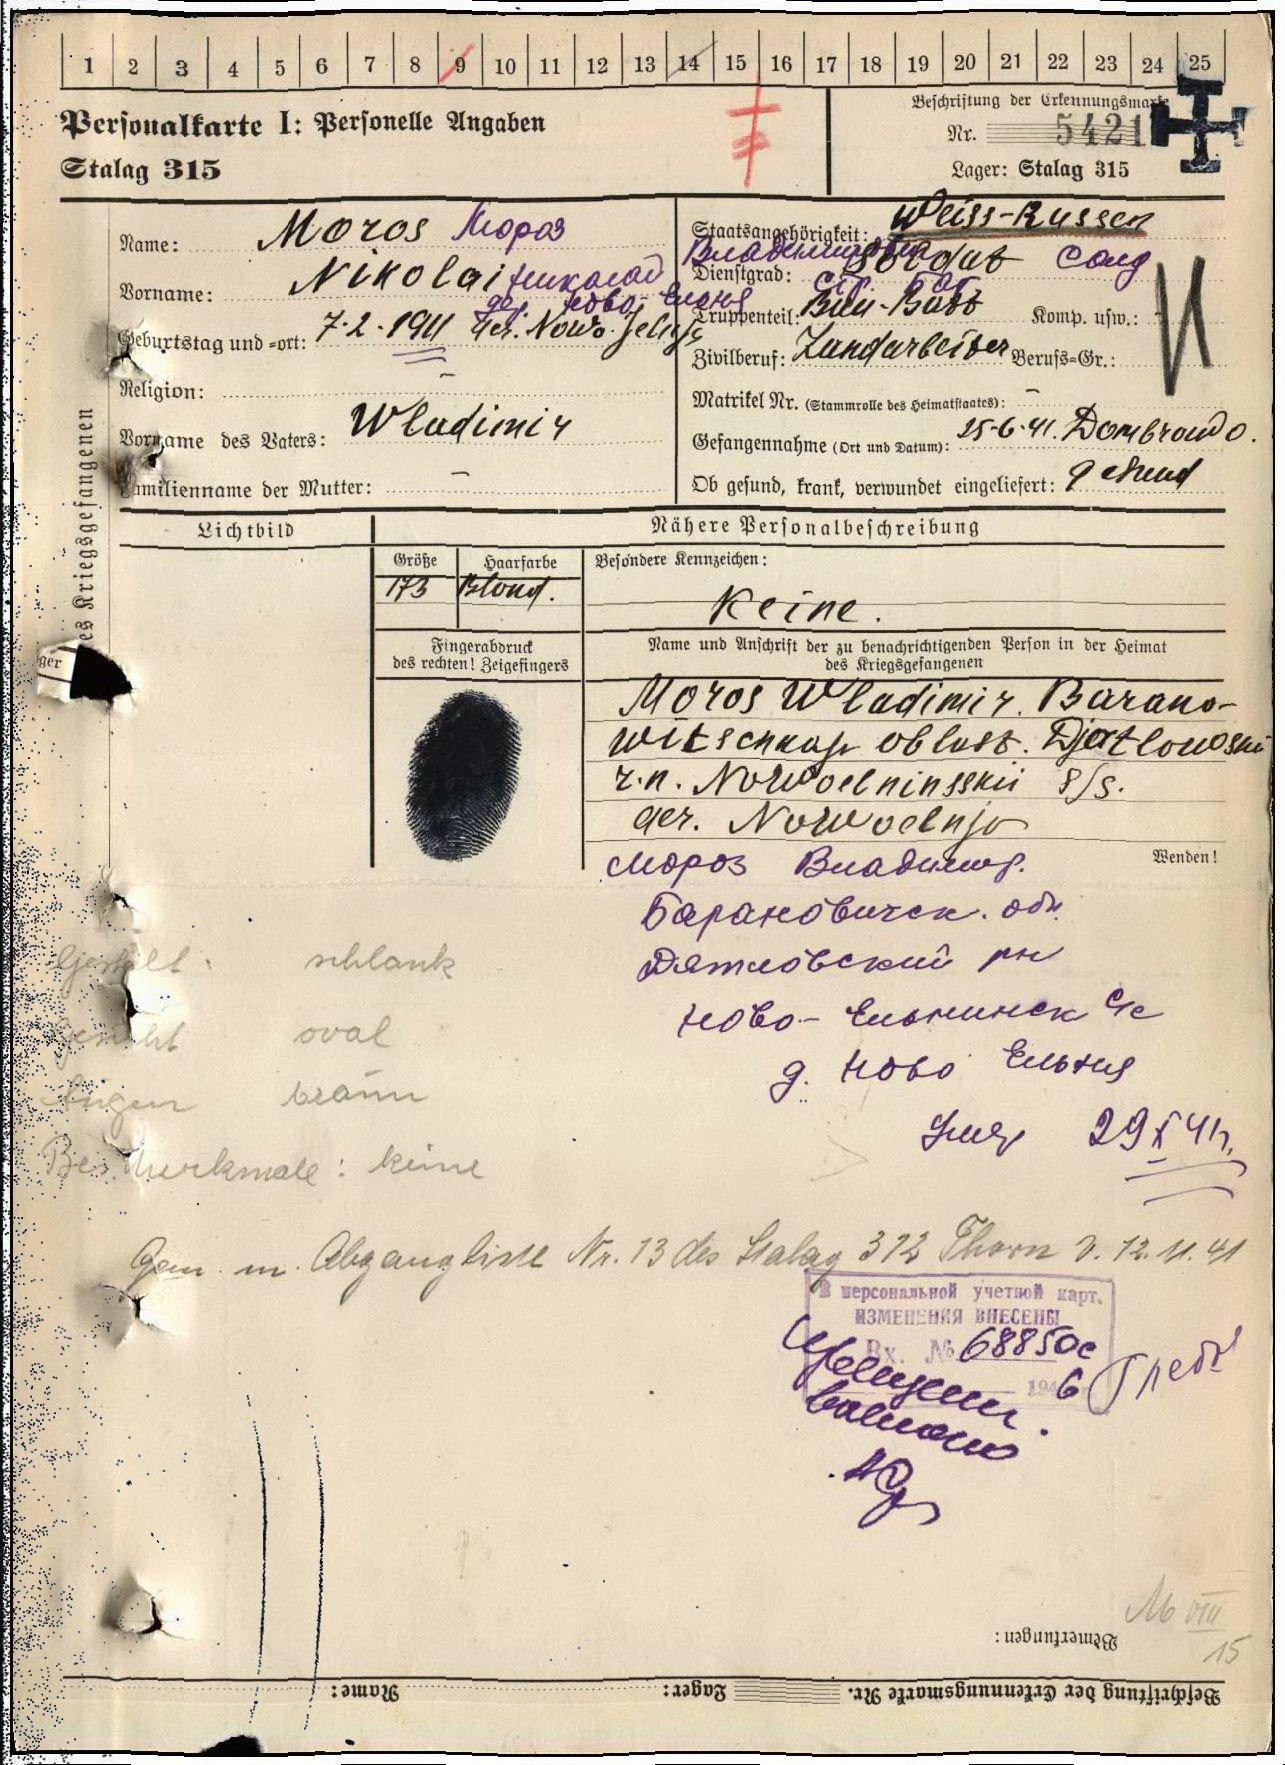 1 2 3 4 5 6 7 8 9 10 11 12 13 14 15 16 17 18 19 20 21 22 23 24 25
Personalkarte I: Personelle Angaben
Stalag 315
Beschriftung der Erkennungsmarke
Nr. 5421
Lager: Stalag 315
des Kriegsgefangenen
Name: Moros Мороз
Vorname: Nikolai Николай Владимирович
дер. Ново-Ельня
Geburtstag und =ort: 7.2.1911 der. Nowo. Jelnje
Religion: –
Vorname des Vaters: Wladimir
Familienname der Mutter: –
Staatsangehörigkeit: Weiss-Russen
Dienstgrad: Soldat Солд
Truppenteil: Komp. usw.: -
Zivilberuf: Landarbeiter Berufs=Gr.:
Matrikel Nr. (Stammrolle des Heimatstaates): –
Gefangennahme (Ort und Datum): 25.6.41. Dombrowo.
Ob gesund, krank, verwundet eingeliefert: gesund
Lichtbild
Nähere Personalbeschreibung
Größe Haarfarbe Besondere Kennzeichen:
173 Blond.
Keine.
Fingerabdruck
des rechten! Zeigefingers
Name und Anschrift der zu benachrichtigenden Person in der Heimat
des Kriegsgefangenen
ger
Moros Wladimir. Barano-
witschkaja oblast. Djatlowskii
r.n. Nowoelninsskii s/s.
der. Nowoelnja
Wenden!
Мороз Владимир.
Барановическ. обл.
Дятловский рн
Ново-Ельнинск с/с
д. Ново Ельня
29 X 41г.
Gestalt: schlank
Gesicht oval
Augen braun
Bes Merkmale: keine
Gem. m. Abgangliste Nr. 13 des Stalag 312 Thorn v. 12.11.41
В персональной учетной карт.
ИЗМЕНЕНИЯ ВНЕСЕНЫ
Вх. № 68850с
194 6
VIII
15
Bemerkungen:
Beschriftung der Erkennungsmarke Nr. Lager: Name: